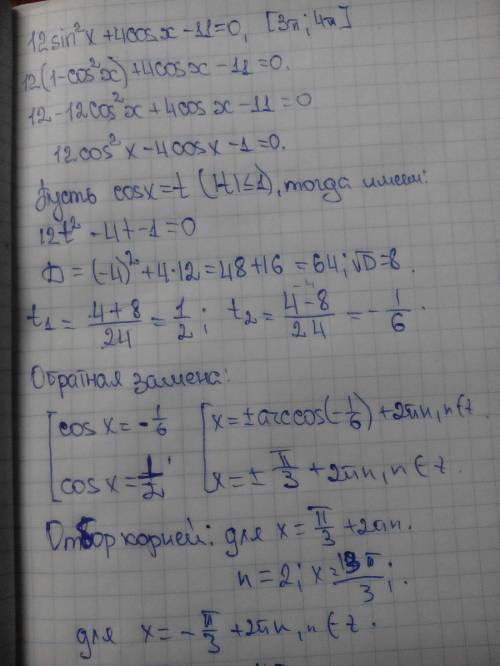 12sin²x+4cosx-11=0, [3π;4π]
12(1-cos²x)+4cosx-11=0.
12-12cos²x+4cosx-11=0
12cos²x-4cosx-1=0.
Пусть cosx=t (|t|≤1), тогда имеем:
12t²-4t-1=0
D=(-4)²+4·12=48+16=64; √D=8.
t₁=(4+8)/24=1/2; t₂=(4-8)/24=-1/6.
Обратная замена:
[cosx=-1/6 [x=±arccos(-1/6)+2πn, n∈z.
[cosx=1/2; [x=±π/3+2πn, n∈z.
Отбор корней: для x=π/3+2πn.
n=2; x=13π/3;.
для x=-π/3+2πn, n∈z.